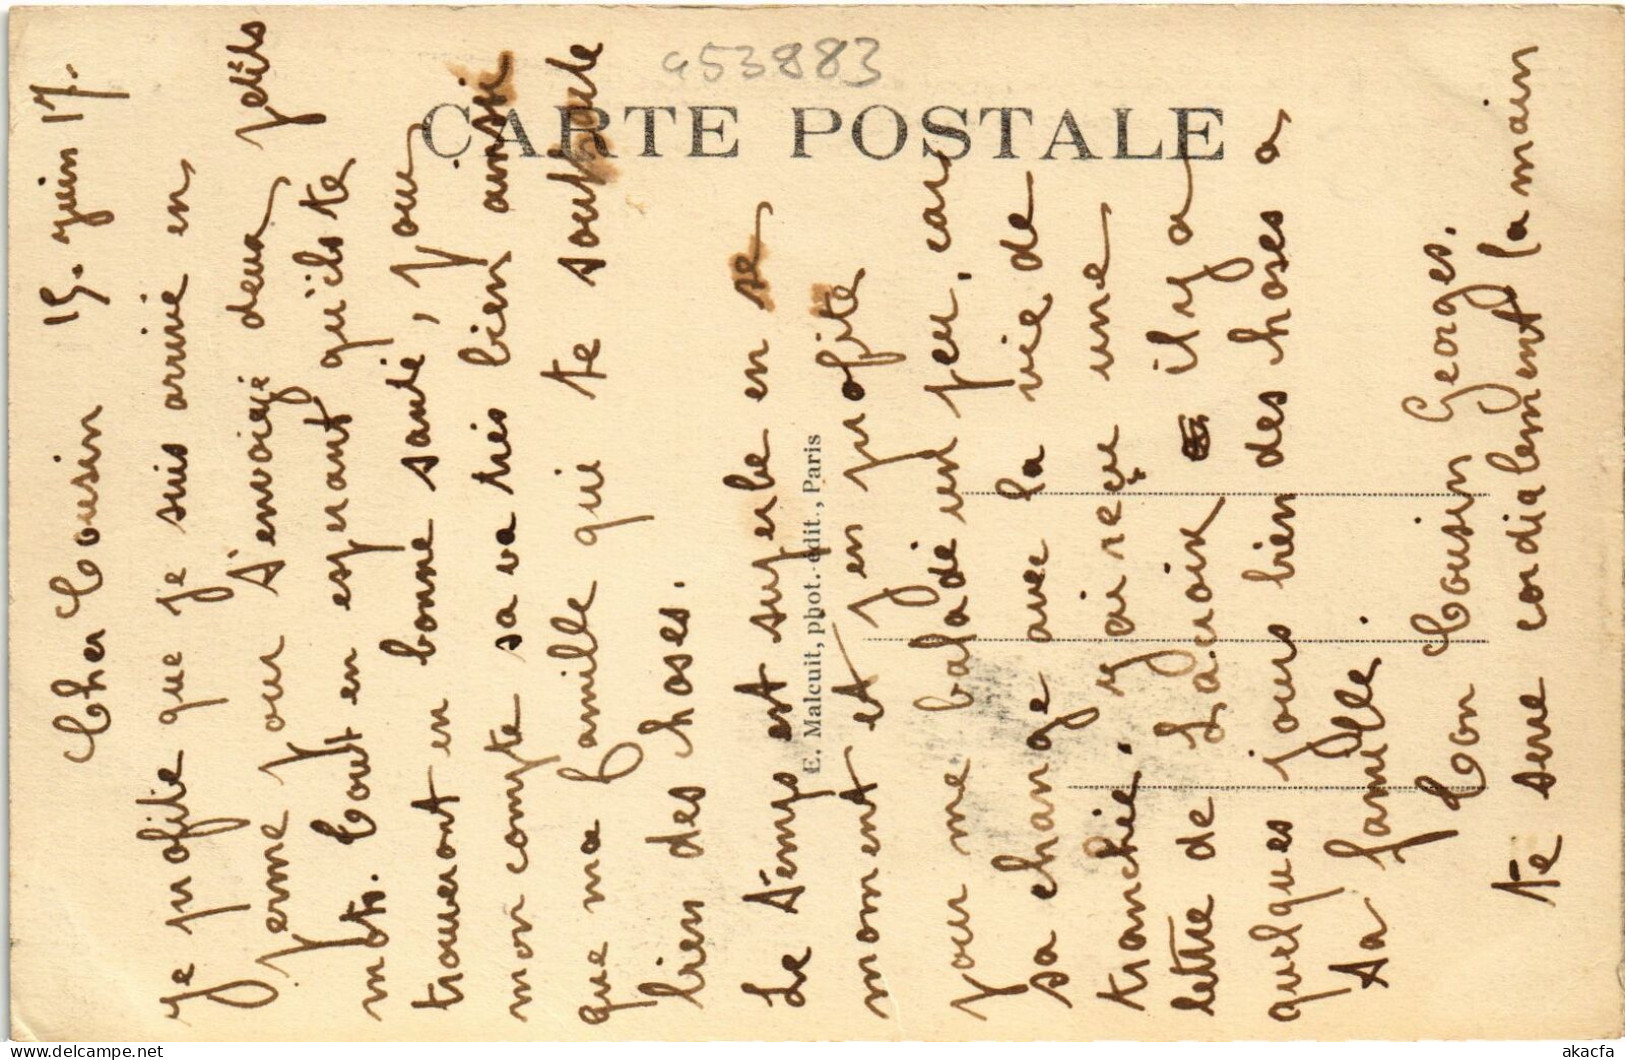 953883
CARTE POSTALE
E. Malcuit, phot.-édit., Paris
15. juin 17.
Cher Cousin
Je profite que je suis arrivé en
perme pour t'envoiyé deux petits
mots. Tout en espérant qu'ils te
trouveront en bonne santé, pour
mon compte sa va très bien ainsi
que ma famille qui te souhaite
bien des choses.
Le temps est superbe en se
moment et j'en profite
pour me baladé un peu, car
sa change avec la vie de
tranchée. j'ai reçu une
lettre de Lacroix il y a
quelques jours bien des choses a
ta famille.
Ton Cousin Georges.
te serre cordialement la main
akacfa